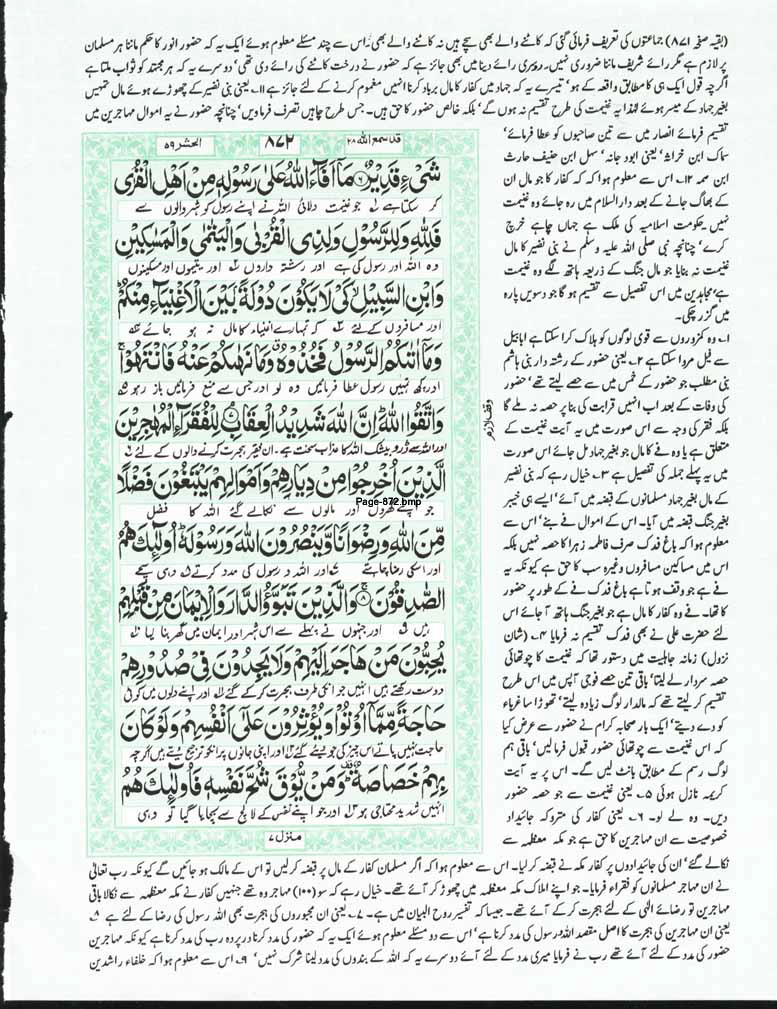 (بقیہ صفحہ ۸۷۱) جماعتوں کی تعریف فرمائی گئی کہ کاٹنے والے بھی سچے ہیں نہ کاٹنے والے بھی، اس سے چند مسئلے معلوم ہوئے ایک یہ کہ حضور انور کا حکم ماننا ہر مسلمان
پر لازم ہے مگر رائے شریف ماننا ضروری نہیں۔ روبری رائے دینا بھی جائز ہے کہ حضور نے درخت کاٹنے کی رائے دی تھی' دوسرے یہ کہ ہر مجتہد کو ثواب ملتا ہے
اگرچہ قول ایک ہی کا مطابق واقعہ کے ہو' تیسرے یہ کہ جہاد میں کفار کا مال برباد کرنا انہیں مغموم کرنے کے لئے جائز ہے ۱۱۔ یعنی بنی نضیر کے چھوڑے ہوئے مال تمہیں
بغیر جہاد کے میسر ہوئے لہذا یہ غنیمت کی طرح تقسیم نہ ہوں گے' بلکہ خالص حضور کا حق ہیں۔ جس طرح چاہیں تصرف فرماویں' چنانچہ حضور نے یہ اموال مہاجرین میں
تقسیم فرمائے انصار میں سے تین صاحبوں کو عطا فرمائے'
سماک ابن خراشہ' یعنی ابود جانہ' سہل ابن حنیف حارث
ابن صمہ ۱۲۔ اس سے معلوم ہوا کہ کہ کفار کا جو مال ان
کے بھاگ جانے کے بعد دار السلام میں رہ جائے وہ غنیمت
نہیں۔ حکومت اسلامیہ کی ملک ہے جہاں چاہے خرچ
کرے' چنانچہ نبی صلی اللہ علیہ وسلم نے بنی نضیر کا مال
غنیمت نہ بنایا جو مال جنگ کے ذریعہ ہاتھ لگے وہ غنیمت
ہے' مجاہدین میں اس تفصیل سے تقسیم ہو گا جو دسویں پارہ
میں گزر چکی۔
۱۔ وہ کمزوروں سے قوی لوگوں کو ہلاک کرا سکتا ہے ابابیل
سے فیل مروا سکتا ہے ۲۔ یعنی حضور کے رشتہ دار بنی ہاشم
بنی مطلب جو حضور کے خمس میں سے حصے لیتے تھے' حضور
کی وفات کے بعد اب انہیں قرابت کی بنا پر حصہ نہ ملے گا
بلکہ فقر کی وجہ سے اس صورت میں یہ آیت غنیمت کے
متعلق ہے یا وہ فے کا مال جو بغیر جہاد مل جائے اس صورت
میں یہ پہلے جملہ کی تفصیل ہے ۳۔ خیال رہے کہ بنی نضیر
کے مال بغیر جہاد مسلمانوں کے قبضہ میں آئے' ایسے ہی خیبر
بغیر جنگ قبضہ میں آیا۔ اس کے اموال فے بنے' اس سے
معلوم ہوا کہ باغ فدک صرف فاطمہ زہرا کا حصہ نہیں بلکہ
اس میں مساکین مسافروں وغیرہ سب کا حق ہے کیونکہ یہ
فے ہے جو وقف ہوتا ہے باغ فدک فے کے طور پر حضور
کا تھا۔ فے وہ کفار کا مال ہے جو بغیر جنگ ہاتھ آ جائے اس
لئے حضرت علی نے بھی فدک تقسیم نہ فرمایا ۴۔ (شان
نزول) زمانہ جاہلیت میں دستور تھا کہ غنیمت کا چوتھائی
حصہ سردار لے لیتا' باقی تین حصے فوجی آپس میں اس طرح
تقسیم کر لیتے تھے کہ مالدار لوگ زیادہ لیتے' تھوڑا سا غرباء
کو دے دیتے' ایک بار صحابہ کرام نے حضور سے عرض کیا
کہ اس غنیمت سے چوتھائی حضور قبول فرمالیں' باقی ہم
لوگ رسم کے مطابق بانٹ لیں گے۔ اس پر یہ آیت
کریمہ نازل ہوئی ۵۔ یعنی غنیمت سے جو حصہ حضور
دیں۔ وہ لے لو۔ ۶۔ یعنی کفار کی متروکہ جائیداد
خصوصیت سے ان مہاجرین کا حق ہے جو مکہ معظمہ سے
وقف لازم
قد سمع اللہ ۲۸
۸۷۲
الحشر ۵۹
شَیْءٍ قَدِیْرٌ ۝۶ مَاۤ اَفَآءَ اللّٰهُ عَلٰى رَسُوْلِهٖ مِنْ اَهْلِ الْقُرٰى
کر سکتا ہے ۱ جو غنیمت دلائی اللہ نے اپنے رسول کو شہر والوں سے
فَلِلّٰهِ وَ لِلرَّسُوْلِ وَ لِذِی الْقُرْبٰى وَ الْیَتٰمٰى وَ الْمَسٰكِیْنِ
وہ اللہ اور رسول کی ہے اور رشتہ داروں ۲ اور یتیموں اور مسکینوں
وَ ابْنِ السَّبِیْلِ ۙ كَیْ لَا یَكُوْنَ دُوْلَةًۢ بَیْنَ الْاَغْنِیَآءِ مِنْكُمْ ؕ
اور مسافروں کے لئے ۳ کہ تمہارے اغنیاء کا مال نہ ہو جائے ۴
وَ مَاۤ اٰتٰىكُمُ الرَّسُوْلُ فَخُذُوْهُ ۗ وَ مَا نَهٰىكُمْ عَنْهُ فَانْتَهُوْا ۚ
اور جو کچھ تمہیں رسول عطا فرمائیں وہ لو اور جس سے منع فرمائیں باز رہو ۵
وَ اتَّقُوا اللّٰهَ ؕ اِنَّ اللّٰهَ شَدِیْدُ الْعِقَابِ ۝۷ لِلْفُقَرَآءِ الْمُهٰجِرِیْنَ
اور اللہ سے ڈرو بیشک اللہ کا عذاب سخت ہے۔ ان فقیر ہجرت کرنے والوں کے لئے ۶
الَّذِیْنَ اُخْرِجُوْا مِنْ دِیَارِهِمْ وَ اَمْوَالِهِمْ یَبْتَغُوْنَ فَضْلًا
Page-872.bmp
جو اپنے گھروں اور مالوں سے نکالے گئے اللہ کا فضل
مِّنَ اللّٰهِ وَ رِضْوَانًا وَّ یَنْصُرُوْنَ اللّٰهَ وَ رَسُوْلَهٗ ؕ اُولٰٓىِٕكَ هُمُ
اور اسکی رضا چاہتے ۷ اور اللہ و رسول کی مدد کرتے ۸ وہی سچے
الصّٰدِقُوْنَ ۝۸ وَ الَّذِیْنَ تَبَوَّؤُ الدَّارَ وَ الْاِیْمَانَ مِنْ قَبْلِهِمْ
ہیں ۹ اور جنہوں نے پہلے سے اس شہر اور ایمان میں گھر بنا لیا ۱۰
یُحِبُّوْنَ مَنْ هَاجَرَ اِلَیْهِمْ وَ لَا یَجِدُوْنَ فِیْ صُدُوْرِهِمْ
دوست رکھتے ہیں انہیں جو انکی طرف ہجرت کر کے گئے ۱۱ اور اپنے دلوں میں کوئی
حَاجَةً مِّمَّاۤ اُوْتُوْا وَ یُؤْثِرُوْنَ عَلٰۤى اَنْفُسِهِمْ وَ لَوْ كَانَ
حاجت نہیں پاتے اس چیز کی جو دیئے گئے ۱۲ اور اپنی جانوں پر انکو ترجیح دیتے ہیں اگرچہ
بِهِمْ خَصَاصَةٌ ؕ وَ مَنْ یُّوْقَ شُحَّ نَفْسِهٖ فَاُولٰٓىِٕكَ هُمُ
انہیں شدید محتاجی ہو ۱۳ اور جو اپنے نفس کے لالچ سے بچایا گیا تو وہی
منزل ۷
نکالے گئے' ان کی جائیدادوں پر کفار مکہ نے قبضہ کر لیا۔ اس سے معلوم ہوا کہ اگر مسلمان کفار کے مال پر قبضہ کر لیں تو اس کے مالک ہو جائیں گے کیونکہ رب تعالیٰ
نے ان مہاجر مسلمانوں کو فقراء فرمایا۔ جو اپنے املاک مکہ معظمہ میں چھوڑ کر آئے تھے۔ خیال رہے کہ سو (۱۰۰) مہاجر وہ تھے جنہیں کفار نے مکہ معظمہ سے نکالا باقی
مہاجرین تو رضائے الٰہی کے لئے ہجرت کر کے آئے تھے۔ جیسا کہ تفسیر روح البیان میں ہے۔ ۷۔ یعنی ان مجبوروں کی ہجرت بھی اللہ رسول کی رضا کے لئے ہے ۸۔
یعنی ان مہاجرین کی ہجرت کا اصل مقصد اللہ و رسول کی مدد کرنا ہے' اس سے دو مسئلے معلوم ہوئے ایک یہ کہ حضور کی مدد کرنا در پردہ رب کی مدد کرنا ہے کیونکہ مہاجرین
حضور کی مدد کے لئے آئے تھے رب نے فرمایا میری مدد کے لئے آئے دوسرے یہ کہ اللہ کے بندوں کی مدد لینا شرک نہیں' ۹۔ اس سے معلوم ہوا کہ خلفاء راشدین